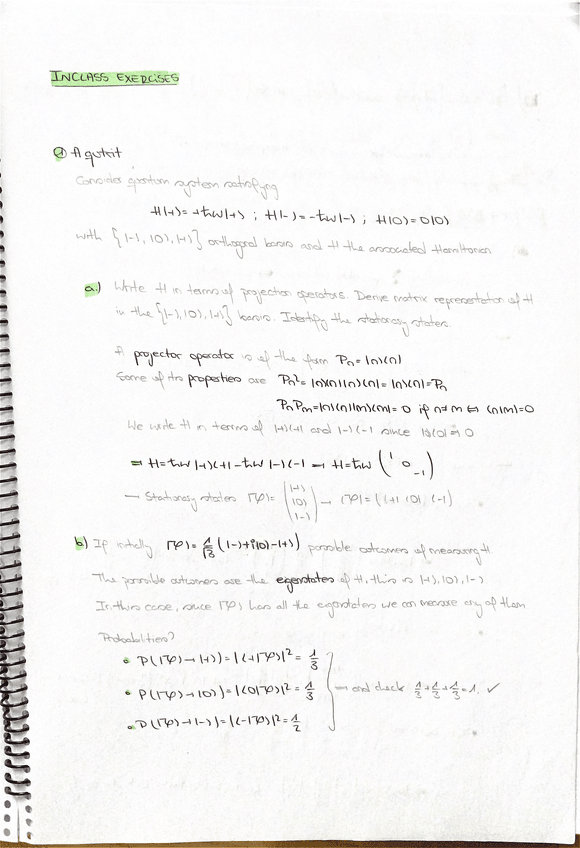 INCLASS EXERCISES
① A qutrit
Consider quantum system satisfying
H|+⟩=+ħω|+⟩ ; H|-⟩=-ħω|-⟩ ; H|0⟩=0|0⟩
with {|-⟩,|0⟩,|+⟩} orthogonal basis and H the associated Hamiltonian
a.) Write H in terms of projection operators. Derive matrix representation of H
in the {|-⟩,|0⟩,|+⟩} basis. Identify the stationary states.
A projector operator is of the form Pn=|n⟩⟨n|
Some of its properties are Pn²=|n⟩⟨n|n⟩⟨n|=|n⟩⟨n|=Pn
PnPm=|n⟩⟨n|m⟩⟨m|=0 if n≠m ⇔ ⟨n|m⟩=0
We write H in terms of |+⟩⟨+| and |-⟩⟨-| since
⇒ H=ħω|+⟩⟨+|-ħω|-⟩⟨-| → H=ħω (1 0 -1)
→ Stationary states |Ψ⟩=(|+⟩ |0⟩ |-⟩) → ⟨Ψ|=(⟨+| ⟨0| ⟨-|)
b.) If initially |Ψ⟩=1/√3(|-⟩+i|0⟩-|+⟩) possible outcomes of measuring H.
The possible outcomes are the eigenstates of H, this is |+⟩,|0⟩,|-⟩
In this case, since |Ψ⟩ has all the eigenstates we can measure any of them
Probabilities?
• P(|Ψ⟩→|+⟩)=|⟨+|Ψ⟩|²=1/3
• P(|Ψ⟩→|0⟩)=|⟨0|Ψ⟩|²=1/3 → and check 1/3+1/3+1/3=1. ✓
• P(|Ψ⟩→|-⟩)=|⟨-|Ψ⟩|²=1/2